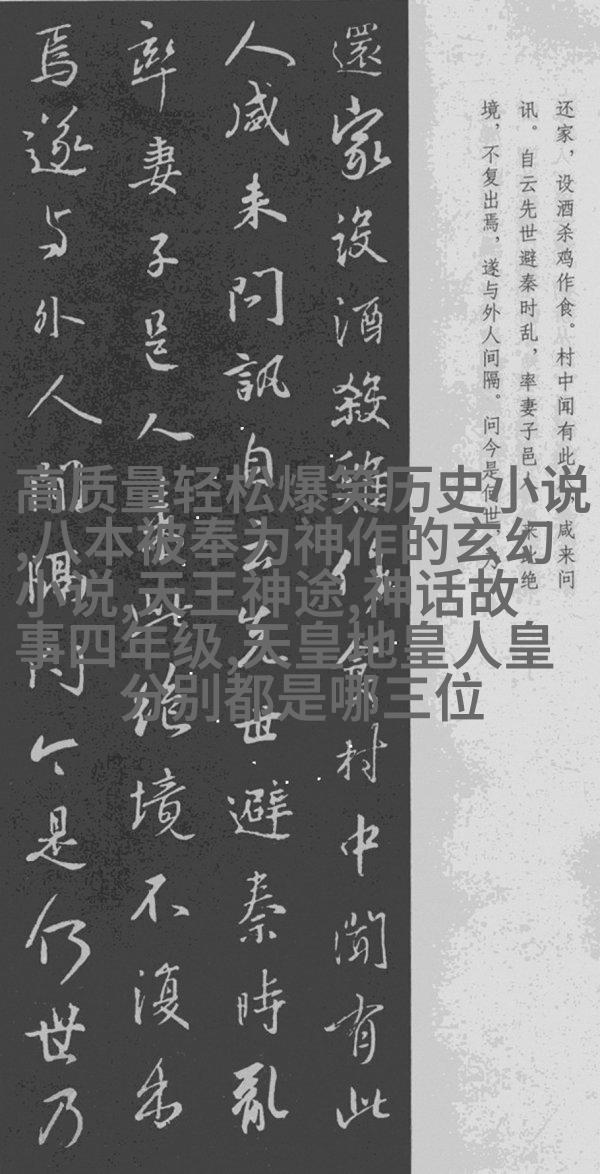 还家，设酒杀鸡作食。村中闻有此人，咸来问
讯。自云先世避秦时乱，率妻子邑人来此绝
境，不复出焉，遂与外人间隔。问今是何世，乃
還家設酒殺雞作食村中聞有此
人咸来問訊自云先世避秦時亂
率妻子邑人来此絶境不復出
焉遂与外人間隔問今是何世乃
高质量轻松爆笑历史小说
,八本被奉为神作的玄幻
小说,天王神途,神话故
事四年级,天皇地皇人皇
分别都是哪三位